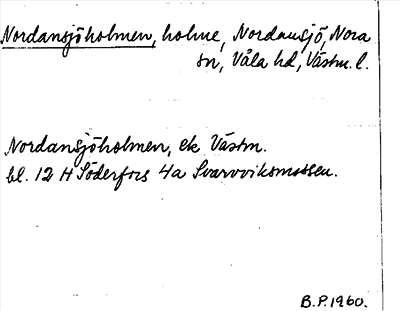 Nordansjöholmen, holme, Nordansjö, Nora
sn, Våla hd, Västm. l.
Nordansjöholmen, ek Västm.
bl. 12 H Söderfors 4a Svarvviksmossen.
B.P. 1960.